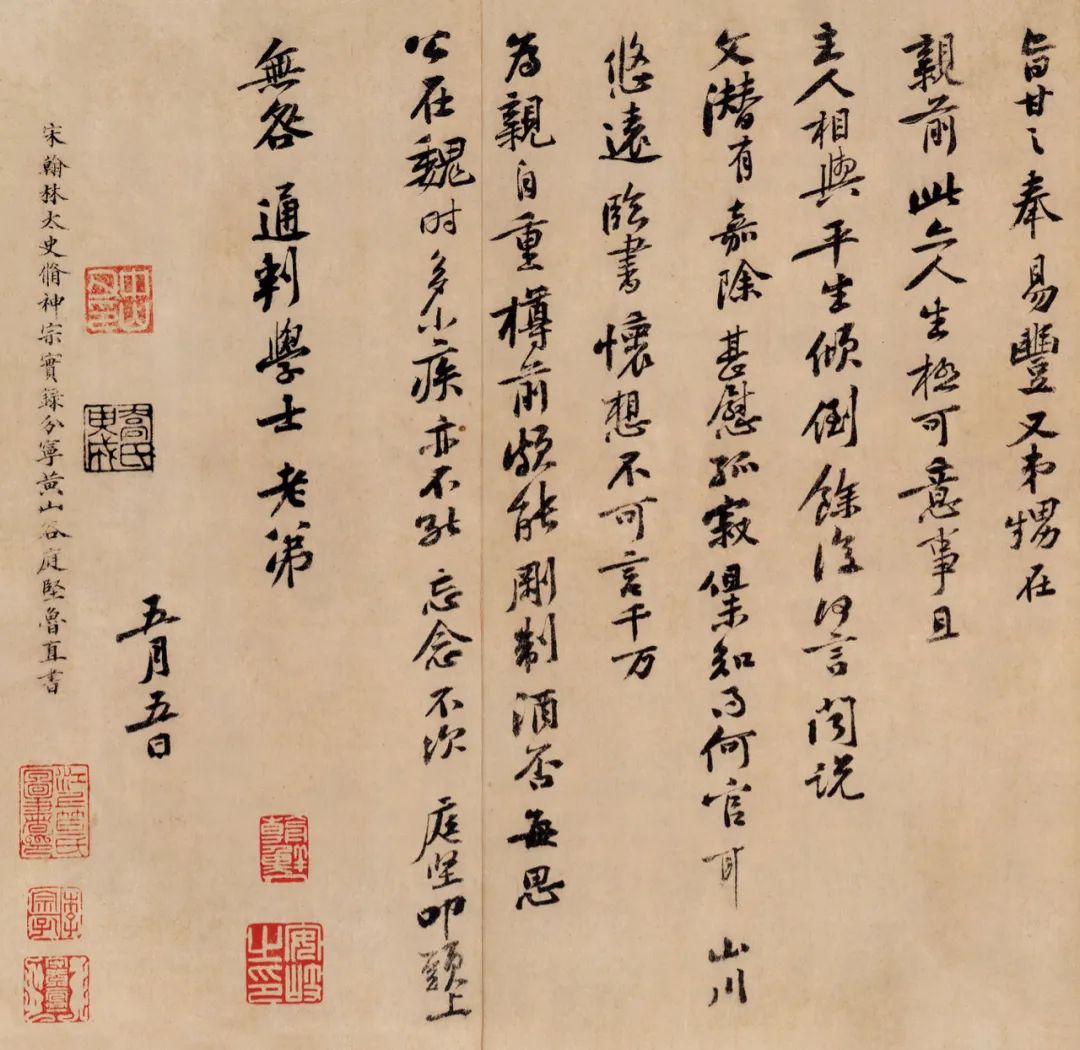 旨甘之奉易豐又弟甥在
親前此亦人生極可意事且
主人相與平生傾倒餘復何言聞説
文潛有嘉除甚慰孤寂但未知得何官耳山川
悠遠臨書懷想不可言千万
為親自重樽前頗能剛制酒否每思
公在魏时多小疾亦不能忘念不次庭坚叩頭上
無咎通判學士老弟
五月五日
宋翰林太史脩神宗實録分寧黄山谷庭堅魯直書
安岐之印
江上笪氏圖書印